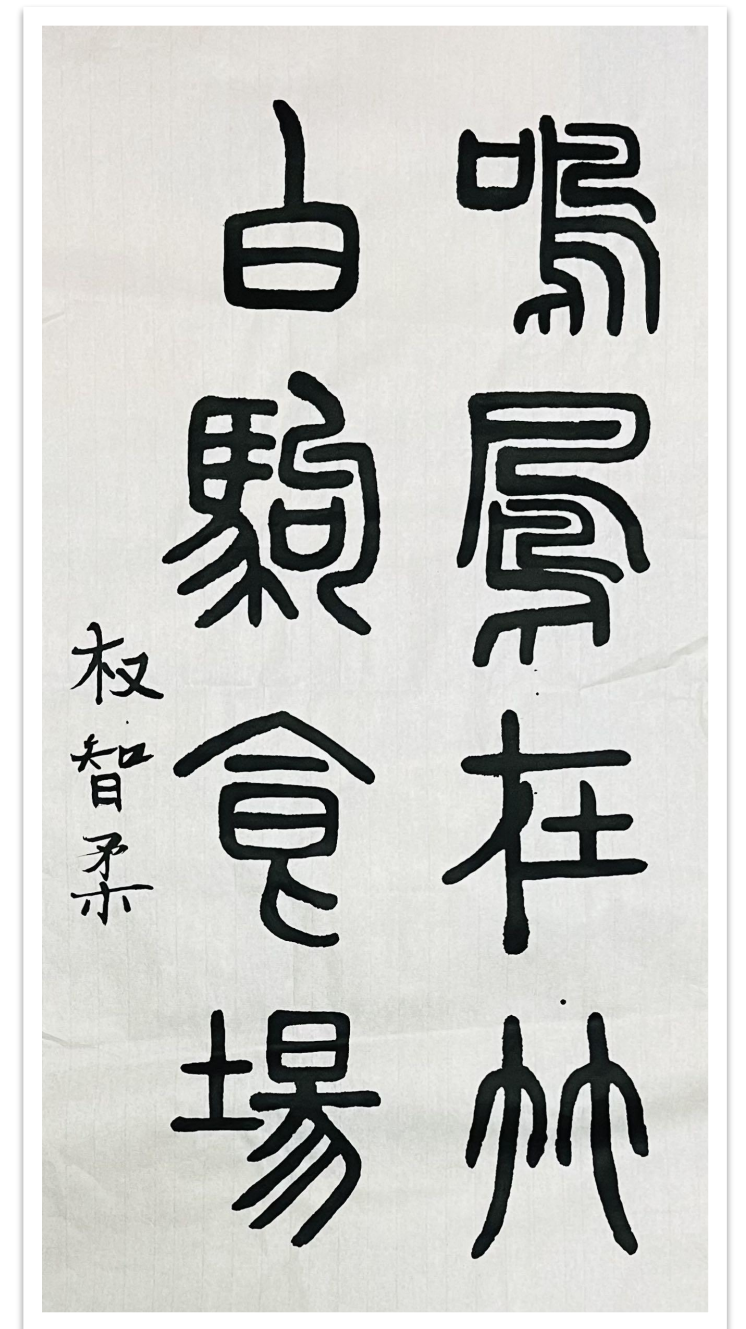 鳴鳳在竹
白駒食場
权智柔